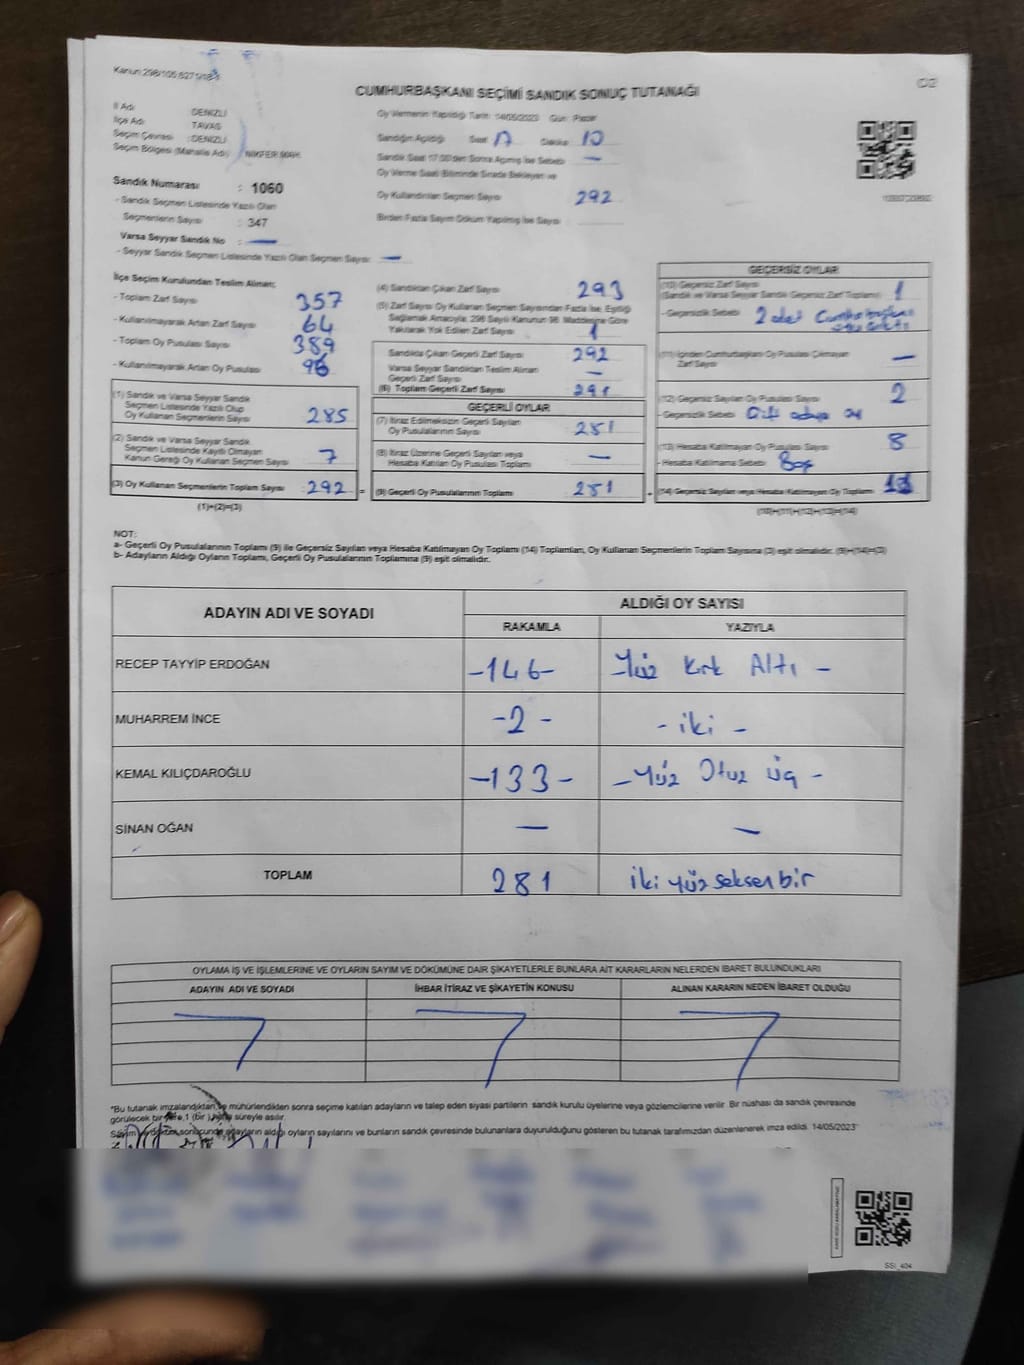 Kanun:298/105;6271/18-1
O2
CUMHURBAŞKANI SEÇİMİ SANDIK SONUÇ TUTANAĞI
İl Adı : DENİZLİ
İlçe Adı : TAVAS
Seçim Çevresi : DENİZLİ
Seçim Bölgesi (Mahalle Adı) NİKFER MAH.
Sandık Numarası : 1060
- Sandık Seçmen Listesinde Yazılı Olan
Seçmenlerin Sayısı : 347
Varsa Seyyar Sandık No : —
- Seyyar Sandık Seçmen Listesinde Yazılı Olan Seçmen Sayısı : —
Oy Vermenin Yapıldığı Tarih: 14/05/2023 Gün: Pazar
Sandığın Açıldığı Saat 17 Dakika 10
Sandık Saat 17.00'den Sonra Açılmış İse Sebebi —
Oy Verme Saati Bitiminde Sırada Bekleyen ve
Oy Kullandırılan Seçmen Sayısı 292
Birden Fazla Sayım Döküm Yapılmış İse Sayısı
İlçe Seçim Kurulundan Teslim Alınan;
- Toplam Zarf Sayısı 357
- Kullanılmayarak Artan Zarf Sayısı 64
- Toplam Oy Pusulası Sayısı 389
- Kullanılmayarak Artan Oy Pusulası
(1) Sandık ve Varsa Seyyar Sandık
Seçmen Listesinde Yazılı Olup
Oy Kullanan Seçmenlerin Sayısı 285
(2) Sandık ve Varsa Seyyar Sandık
Seçmen Listesinde Kayıtlı Olmayan
Kanun Gereği Oy Kullanan Seçmen Sayısı 7
(3) Oy Kullanan Seçmenlerin Toplam Sayısı : 292 =
(1)+(2)=(3)
(4) Sandıktan Çıkan Zarf Sayısı 293
(5) Zarf Sayısı Oy Kullanan Seçmen Sayısından Fazla İse, Eşitliği
Sağlamak Amacıyla, 298 Sayılı Kanunun 98. Maddesine Göre
Yakılarak Yok Edilen Zarf Sayısı 1
Sandıkta Çıkan Geçerli Zarf Sayısı 292
Varsa Seyyar Sandıktan Teslim Alınan
Geçerli Zarf Sayısı —
(6) Toplam Geçerli Zarf Sayısı 291
GEÇERLİ OYLAR
(7) İtiraz Edilmeksizin Geçerli Sayılan
Oy Pusulalarının Sayısı 281
(8) İtiraz Üzerine Geçerli Sayılan veya
Hesaba Katılan Oy Pusulası Toplamı —
(9) Geçerli Oy Pusulalarının Toplamı 281 +
GEÇERSİZ OYLAR
(10) Geçersiz Zarf Sayısı
(Sandık ve Varsa Seyyar Sandık Geçersiz Zarf Toplamı) 1
- Geçersizlik Sebebi 2 adet Cumhurbaşkanı
(11) İçinden Cumhurbaşkanı Oy Pusulası Çıkmayan
Zarf Sayısı —
(12) Geçersiz Sayılan Oy Pusulası Sayısı 2
- Geçersizlik Sebebi Çift adaya oy
(13) Hesaba Katılmayan Oy Pusulası Sayısı 8
- Hesaba Katılmama Sebebi Boş
(14) Geçersiz Sayılan veya Hesaba Katılmayan Oy Toplamı
(10)+(11)+(12)+(13)=(14)
NOT:
a- Geçerli Oy Pusulalarının Toplamı (9) ile Geçersiz Sayılan veya Hesaba Katılmayan Oy Toplamı (14) Toplamları, Oy Kullanan Seçmenlerin Toplam Sayısına (3) eşit olmalıdır. (9)+(14)=(3)
b- Adayların Aldığı Oyların Toplamı, Geçerli Oy Pusulalarının Toplamına (9) eşit olmalıdır.
ADAYIN ADI VE SOYADI ALDIĞI OY SAYISI
RAKAMLA YAZIYLA
RECEP TAYYİP ERDOĞAN -146- -Yüz Kırk Altı -
MUHARREM İNCE -2- -iki-
KEMAL KILIÇDAROĞLU -133- -Yüz Otuz Üç -
SİNAN OĞAN — —
TOPLAM 281 iki yüz seksen bir
OYLAMA İŞ VE İŞLEMLERİNE VE OYLARIN SAYIM VE DÖKÜMÜNE DAİR ŞİKAYETLERLE BUNLARA AİT KARARLARIN NELERDEN İBARET BULUNDUKLARI
ADAYIN ADI VE SOYADI İHBAR İTİRAZ VE ŞİKAYETİN KONUSU ALINAN KARARIN NEDEN İBARET OLDUĞU
*Bu tutanak imzalandıktan ve mühürlendikten sonra seçime katılan adayların ve talep eden siyasi partilerin sandık kurulu üyelerine veya gözlemcilerine verilir. Bir nüshası da sandık çevresinde
görülecek bir yere 1 (bir) hafta süreyle asılır.
Sayım ve döküm sonucunda adayların aldığı oyların sayılarını ve bunların sandık çevresinde bulunanlara duyurulduğunu gösteren bu tutanak tarafımızdan düzenlenerek imza edildi. 14/05/2023
SSI_404